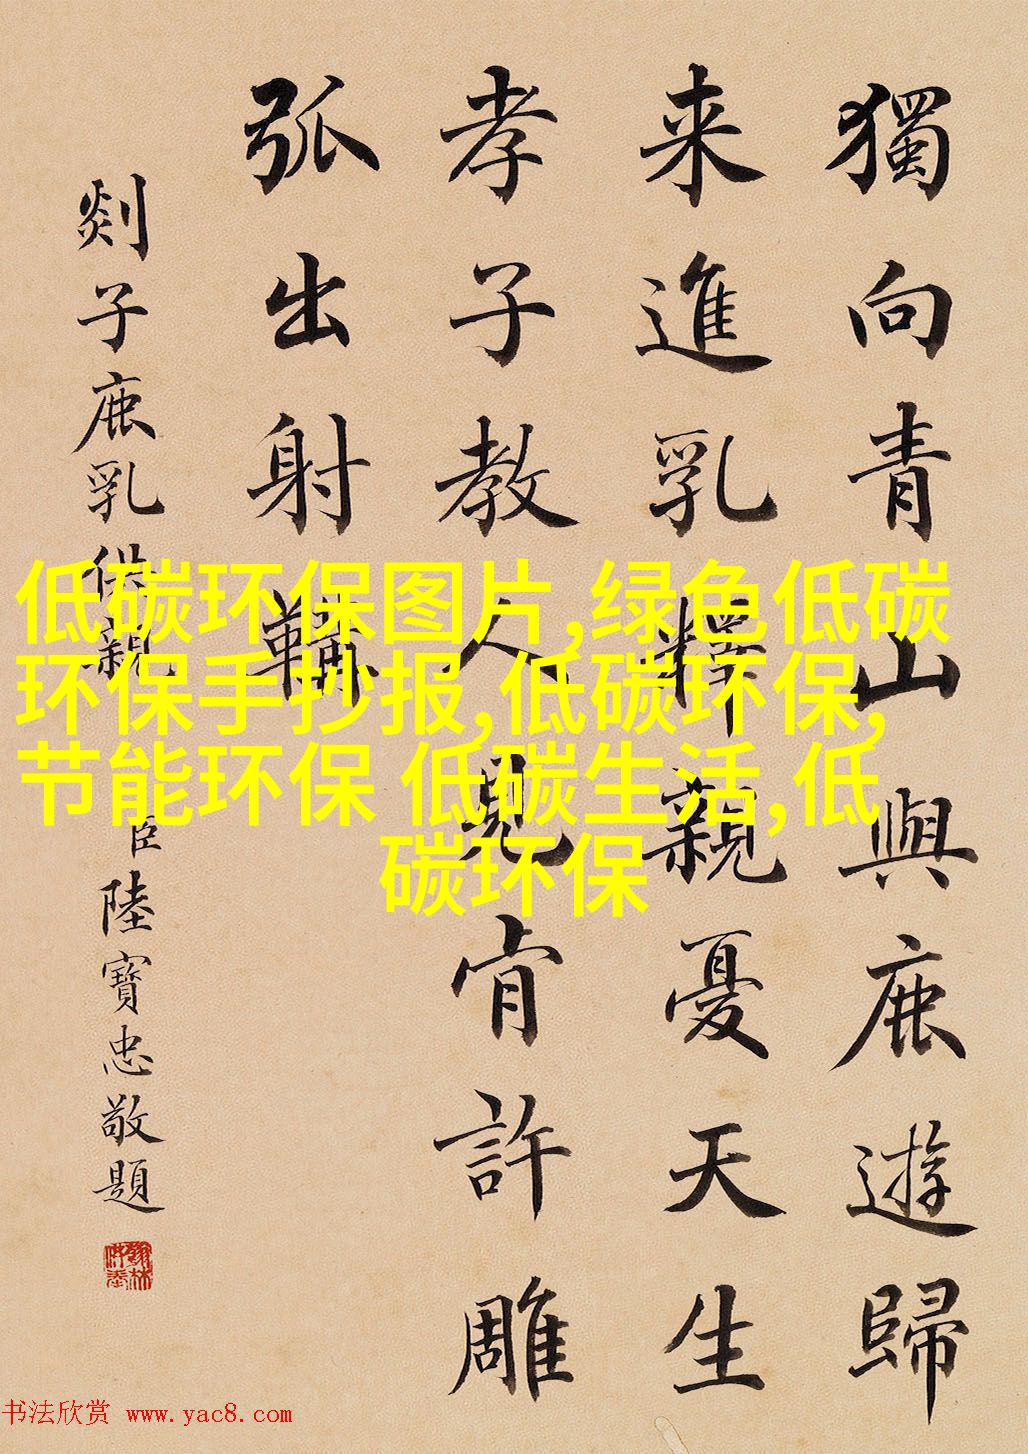 獨向青山與鹿遊歸
来進乳釋親憂天生
孝子教人見肯許雕
弧出射鞲
剡子鹿乳供親
臣陸寶忠敬題
低碳环保图片,绿色低碳
环保手抄报,低碳环保,
节能环保 低碳生活,低
碳环保
书法欣赏 www.yac8.com